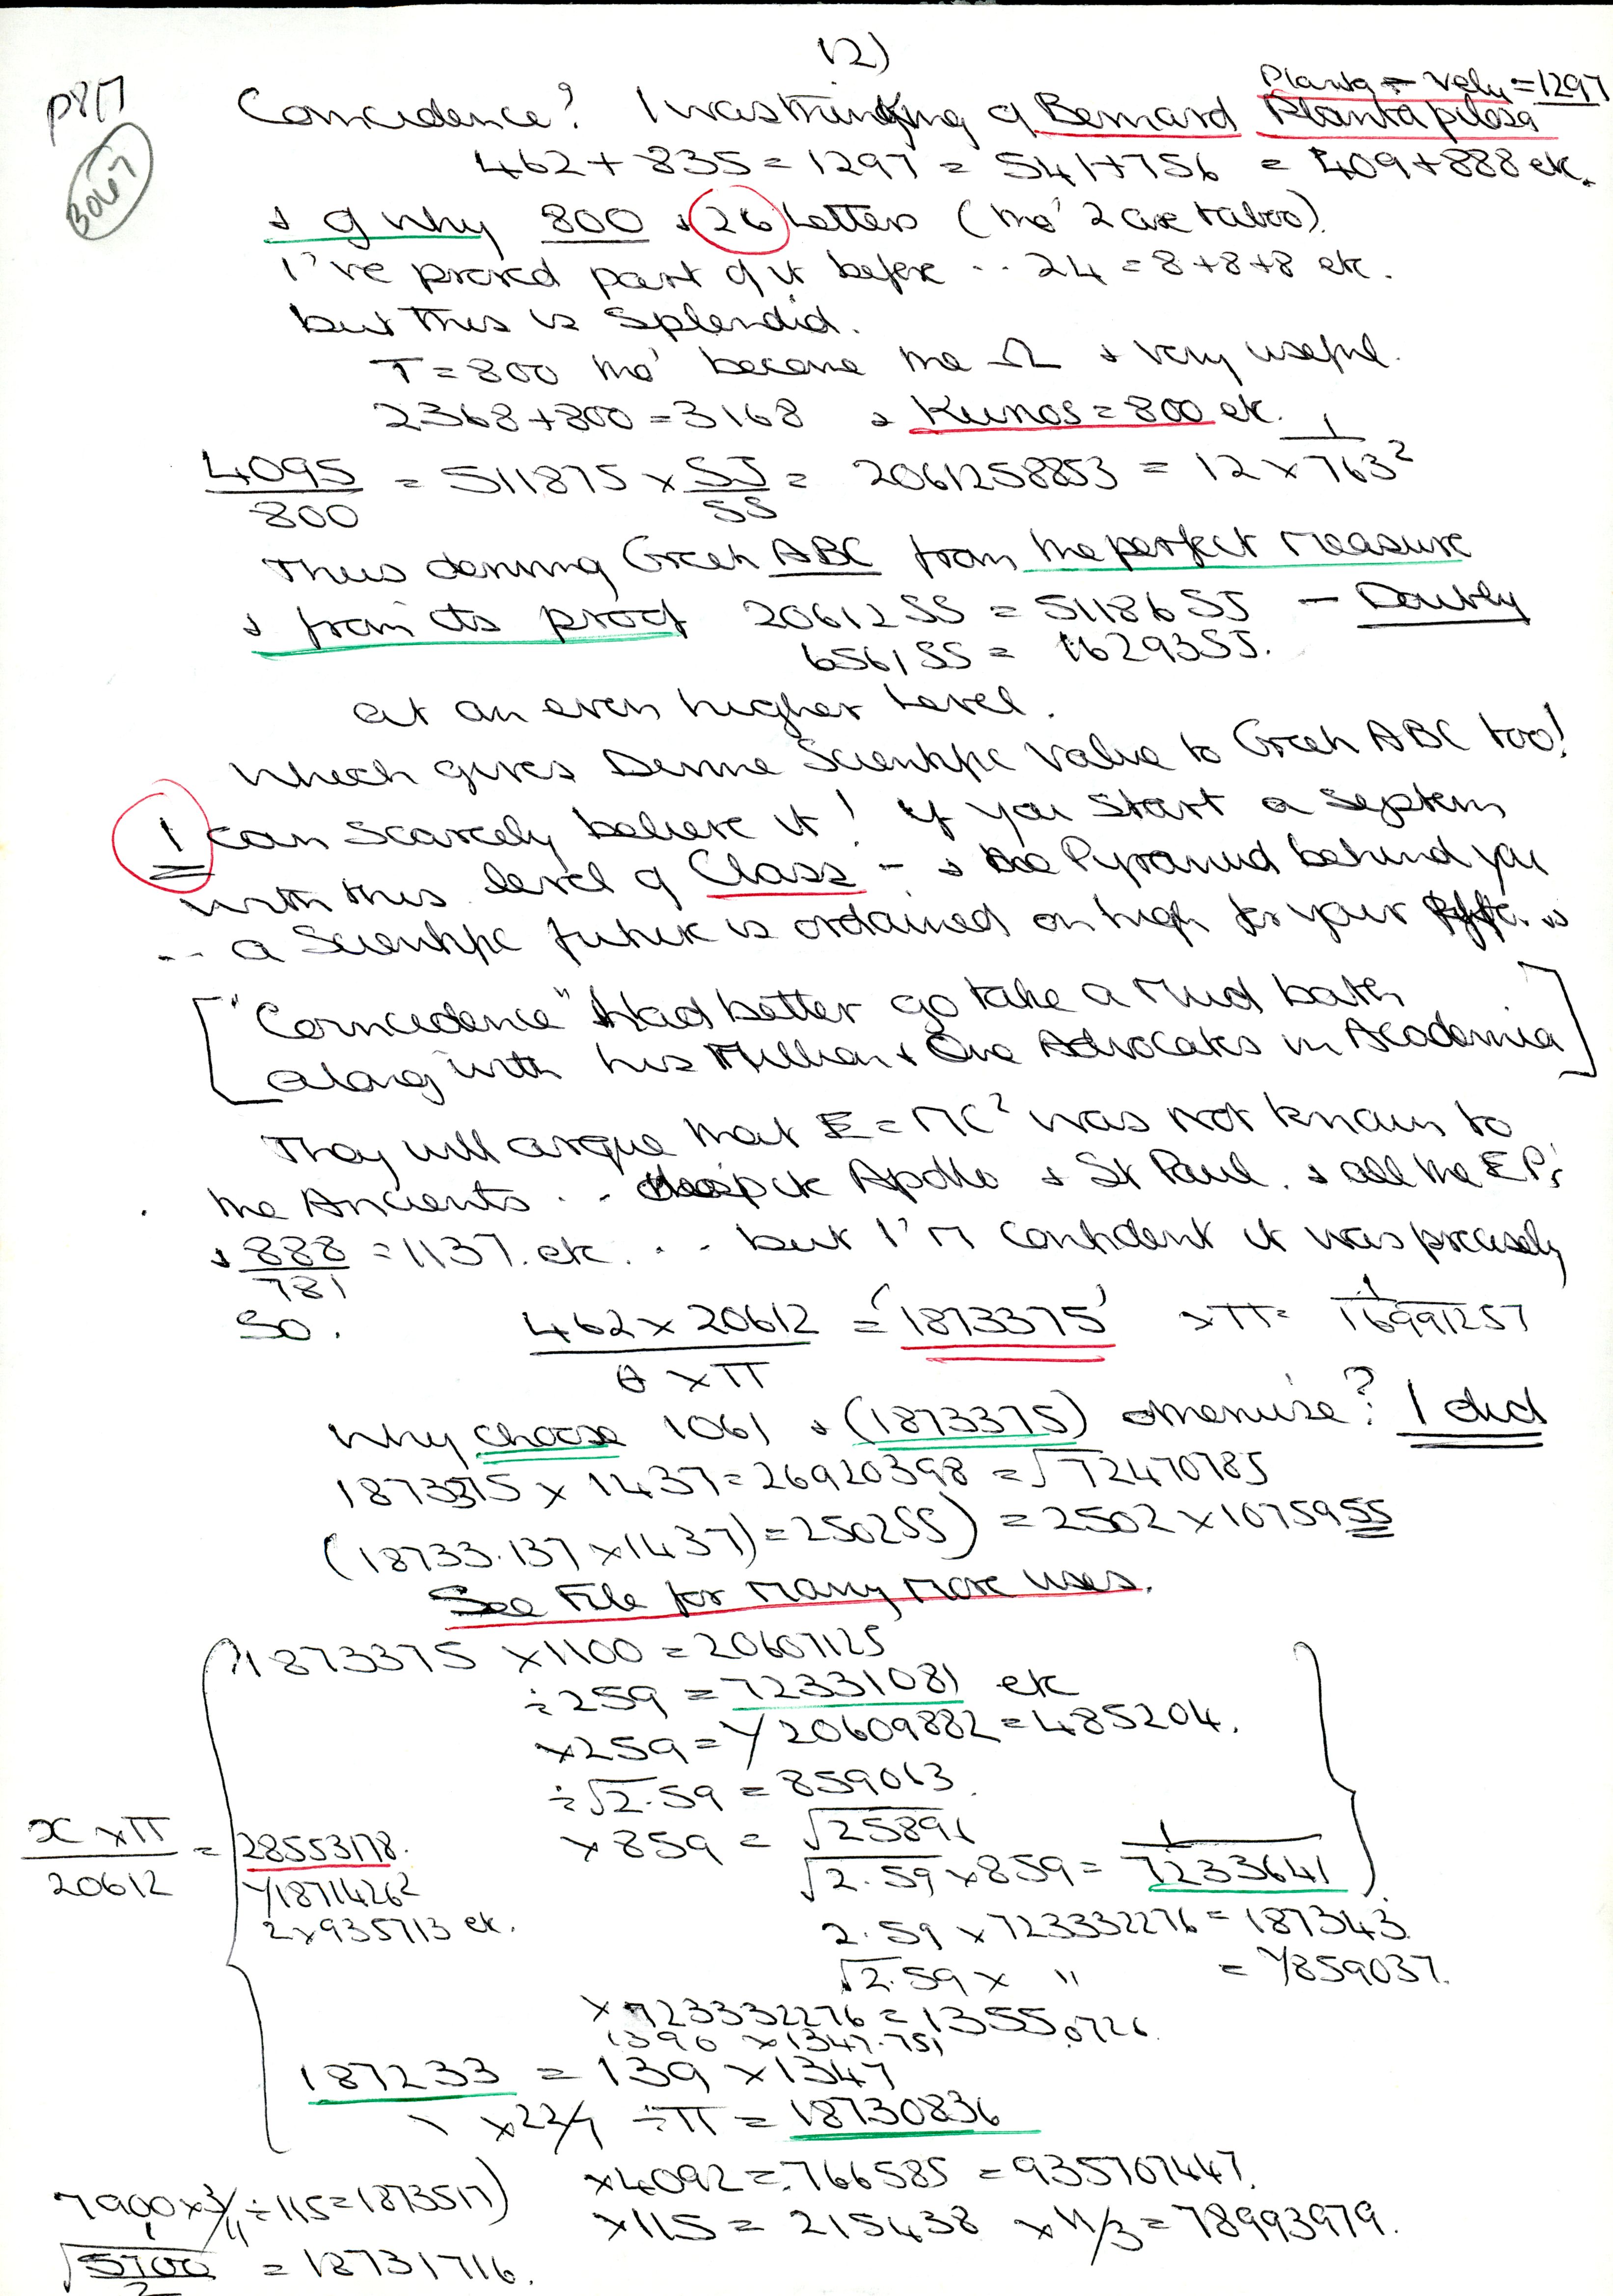 12)
P817
3067
Planta + Velu = 1297
Coincidence? I was thinking of Bernard Planta pilosa
462 + 835 = 1297 = 541+756 = 409+888 etc.
& of why 800 & 26 Letters (tho' 2 are taboo).
I've proved part of it before .. 24 = 8+8+8 etc.
but This is Splendid.
T = 800 tho' became the Ω & very useful.
2368+800 = 3168 & Kunos = 800 etc.
4095/800 = 511875 x SJ/SS = 2061258853 = 12 x 1/763²
Thus deriving Greek ABC from the perfect Measure
& from its proof 20612 SS = 51186 SJ — Doubly
6561 SS = 16293 SJ.
at an even higher Level.
Which gives Divine Scientific Value to Greek ABC too!
I can Scarcely believe it! If you Start a System
with this level of Class - & the Pyramid behind you
.. a Scientific future is ordained on high for your
["Coincidence" Had better go take a Mud bath
along with his Million & One Advocates in Academia]
They will argue that E = MC² was Not known to
the Ancients .. despite Apollo & St Paul. & all the EPs
& 888/781 = 1137. etc. .. but I'm Confident it was precisely
So. 462 x 20612 / θ x π = '1873375' x π = 1/16991257
Why choose 1061 & (1873375) otherwise? I did
1873375 x 1437 = 26920398 = √72470785
(18733.137 x 1437) = 2502SS) = 2502 x 10759SS
See File for Many More uses.
1873375 x 1100 = 20607125
÷ 259 = 72331081 etc
x 259 = 1/20609882 = 485204.
÷ √2.59 = 859013.
x 859 = √25896
√2.59 x 859 = 1/7233641
x x π / 20612 = 28553178.
1/1871426²
2 x 935713 etc.
2.59 x 723332276 = 187343.
√2.59 x " = 1/859037.
x 723332276 = 1355.0726.
1390 x 1347.751
187233 = 139 x 1347
x 22/7 ÷ π = 18730836
x 4092 = .766585 = 935707447.
7900 x 3/11 ÷ 115 = 1873517)
x 115 = 215438 x 11/3 = 78993979.
√5700/2 = 18731716.